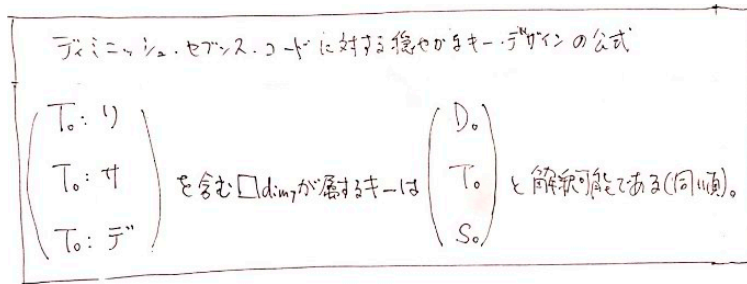 ディミニッシュ・セブンス・コードに対する穏やかなキー・デザインの公式
T₀: リ
T₀: サ
T₀: デ
を含む□dim₇が属するキーは
D₀
T₀
S₀
と解釈可能である(同順)。